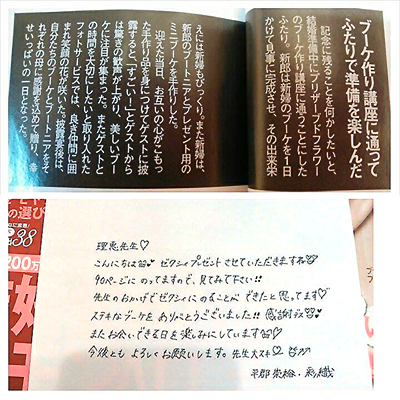 ブーケ作り講座に通って
ふたりで準備を楽しんだ
記念に残ることを何かしたいと、
結婚準備中にプリザーブドフラワー
のブーケ作り講座に通うことにした
ふたり。新郎は新婦のブーケを1日
かけて見事に完成させ、その出来栄
えには新婦もびっくり。また新婦は、
新郎のブートニアとプレゼント用の
ミニブーケを手作りした。
迎えた当日、お互いの心がこもっ
た手作り品を身につけてゲストに披
露すると、「すごい!」とゲストから
は驚きの歓声が上がり、美しいブー
ケに注目が集まった。またゲストと
の時間を大切にしたいと取り入れた
フォトサービスでは、良き仲間に囲
まれ笑顔の花が咲いた。披露宴後は、
自分たちのブーケとブートニアをそ
れぞれの母に感謝を込めて贈り、幸
せいっぱいの一日となった。
の選び
38
200万
理恵先生♡
こんにちは ゼクシィプレゼントさせていただきますね
90ページにのってますので、見てみて下さい!!
先生のおかげでゼクシィにのることができたと思ってます♡
ステキなブーケをありがとうございました!! 感謝です
またお会いできる日を楽しみにしています
今後ともよろしくお願いします。先生大スキ♡